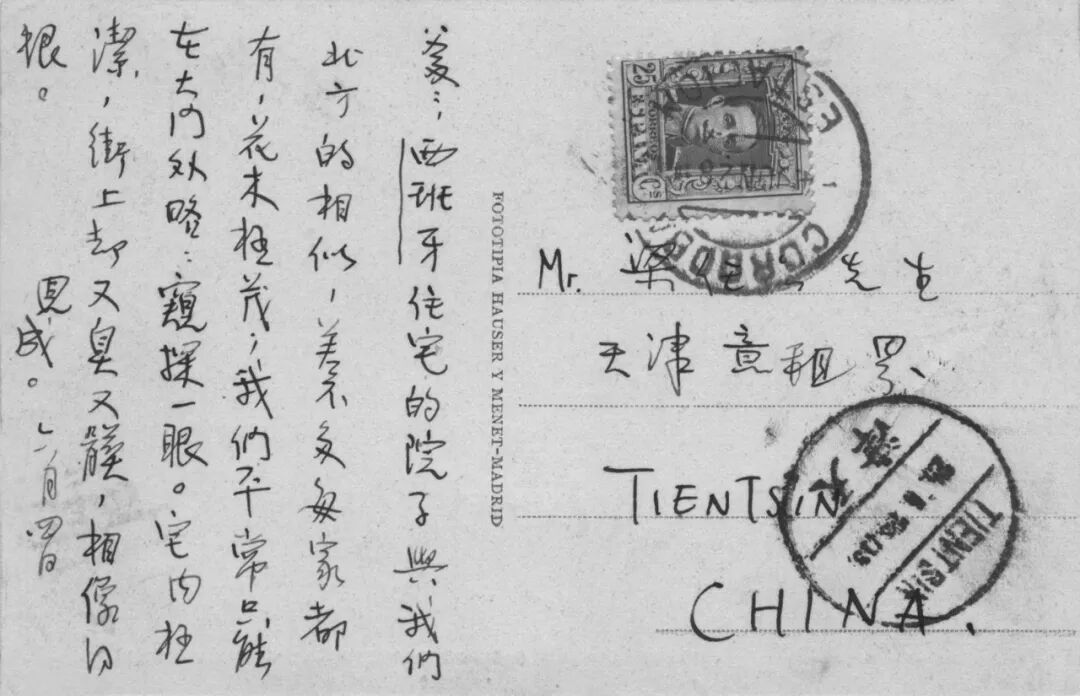 爹〻西班牙住宅的院子與我們
北方的相似，差不多每家都
有，花木極茂，我們平常只能
在大门外略〻窺探一眼。宅内極
潔，街上却又臭又髒，相像得
很。 思成。六月四日
FOTOTIPIA HAUSER Y MENET-MADRID
25 Cs
CORREOS
ESPAÑA
CORDOBA
Mr. 梁任 先生
天津意租界
TIENTSIN
CHINA.
天津
TIENTSIN